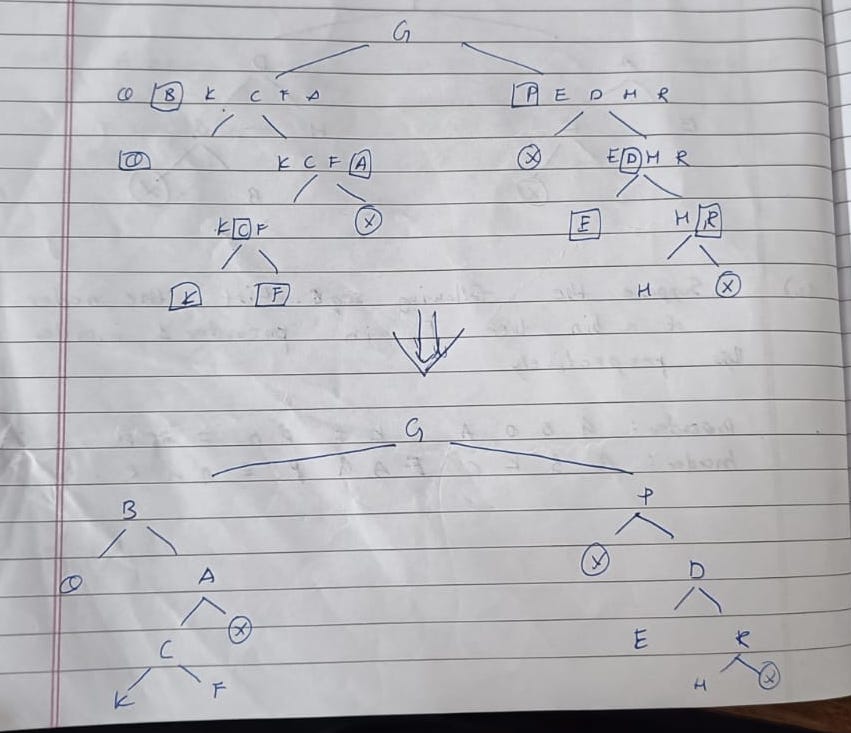 G
Q B K C F A P E D H R
Q K C F A X E D H R
K C F X E H R
K F H X
G
B P
Q A X D
C X E R
K F H X